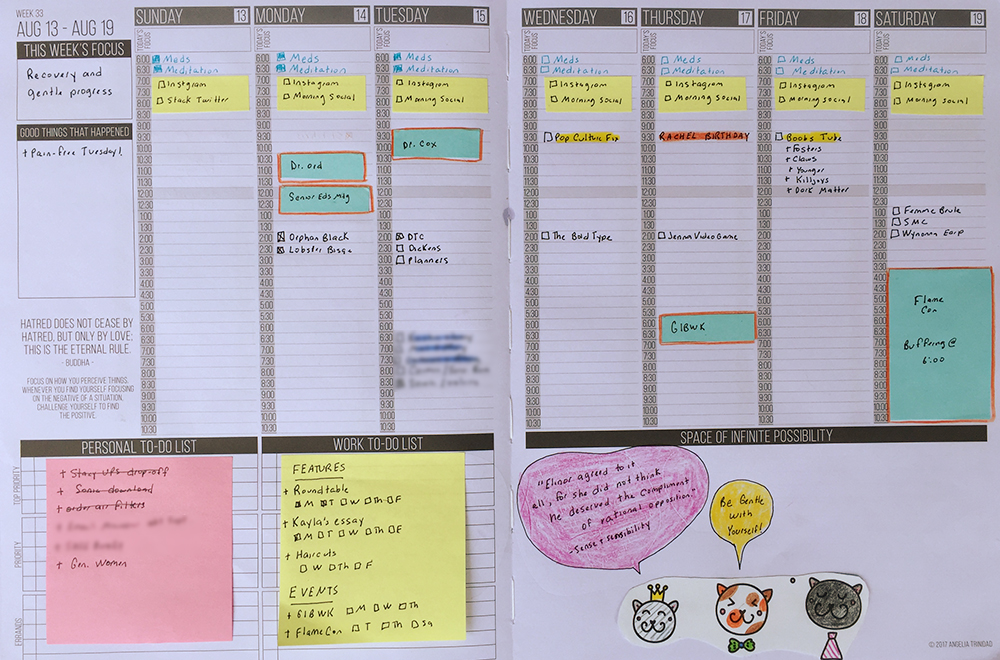 WEEK 33
AUG 13 - AUG 19
THIS WEEK'S FOCUS
Recovery and
gentle progress
GOOD THINGS THAT HAPPENED
+ Pain-free Tuesday!
HATRED DOES NOT CEASE BY
HATRED, BUT ONLY BY LOVE;
THIS IS THE ETERNAL RULE.
- BUDDHA -
FOCUS ON HOW YOU PERCEIVE THINGS.
WHENEVER YOU FIND YOURSELF FOCUSING
ON THE NEGATIVE OF A SITUATION,
CHALLENGE YOURSELF TO FIND
THE POSITIVE.
SUNDAY 13
TODAY'S FOCUS
6:00 Meds
6:30 Meditation
Instgram
Stack Twitter
MONDAY 14
TODAY'S FOCUS
Meds
Meditation
Instagram
Morning Social
Dr. Ord
Senior Eds Mtg
Orphan Black
Lobster Bisque
TUESDAY 15
TODAY'S FOCUS
Meds
Meditation
Instagram
Morning Social
Dr. Cox
DTC
Dickens
Planners
WEDNESDAY 16
TODAY'S FOCUS
Meds
Meditation
Instagram
Morning Social
Pop Culture Fix
The Bold Type
THURSDAY 17
TODAY'S FOCUS
Meds
Meditation
Instagram
Morning Social
RACHEL BIRTHDAY
Jenna Video Game
GIBWK
FRIDAY 18
TODAY'S FOCUS
Meds
Meditation
Instagram
Morning Social
Books Tube
+ Fosters
+ Claws
+ Younger
+ Killjoys
+ Dark Matter
SATURDAY 19
TODAY'S FOCUS
Meds
Meditation
Instagram
Morning Social
Femme Brule
SMC
Wynonna Earp
Flame
Con
Buffering @
6:00
PERSONAL TO-DO LIST
TOP PRIORITY
PRIORITY
ERRANDS
+ Stacy UPS drop-off
+ Sonia download
+ order air filters
+ Gen. Women
WORK TO-DO LIST
FEATURES
+ Roundtable
M T W Th F
+ Kayla's essay
M T W Th F
+ Haircuts
W Th F
EVENTS
+ GIBWK M W Th
+ FlameCon T Th Sa
SPACE OF INFINITE POSSIBILITY
"Elinor agreed to it
all, for she did not think
he deserved the compliment
of rational opposition."
- Sense + sensibility
Be Gentle
with
Yourself!
© 2017 ANGELIA TRINIDAD